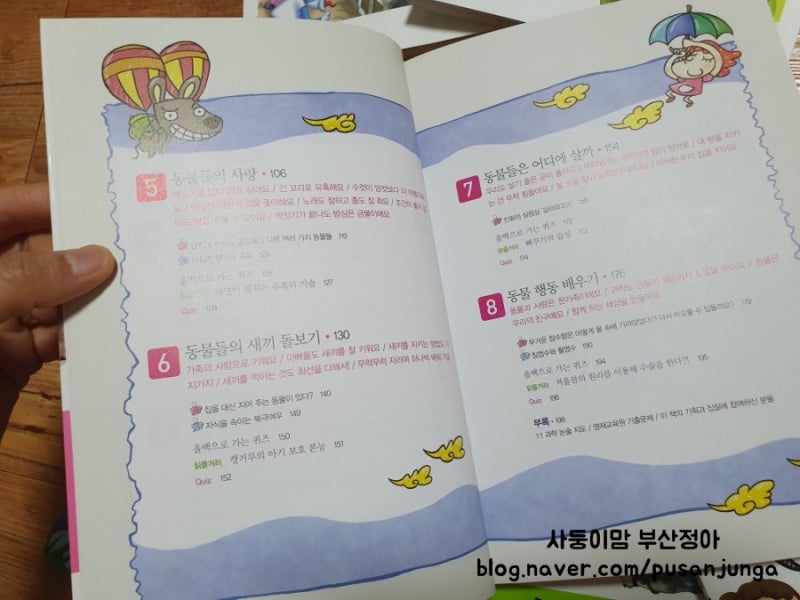 5 동물들의 사랑 • 106
짝짓기를 하기 위해 싸워요 / 긴 꼬리로 유혹해요 / 수컷이 암컷보다 더
수컷을 좋아해요 / 노래도 잘하고 춤도 잘 춰요
짝짓기가 끝나도 방심은 금물이에요
다른 여러 가지 동물들 110
올백으로 가는 퀴즈 126
읽을거리 자명이 펼치는 유혹의 기술 127
Quiz 128
6 동물들의 새끼 돌보기 • 130
가족의 사랑으로 키워요 / 아빠들도 새끼를 잘 키워요 / 새끼를 지키는 방법도
지가지 / 새끼를 먹이는 것도 최선을 다해서! / 무럭무럭 자라며 하나씩 배워 가
집을 대신 지어 주는 동물이 있다? 140
자식을 속이는 북극여우 149
올백으로 가는 퀴즈 150
읽을거리 캥거루의 아기 보호 본능 151
Quiz 152
7 동물들은 어디에 살까 • 154
우리도 살기 좋은 곳이 좋아요 / 내 땅을 지키
는 건 무척 힘들어요 / 아늑한 우리 집을 지어요
진화의 실험실 '갈라파고스' 155
올백으로 가는 퀴즈 172
읽을거리 뻐꾸기의 습성 173
Quiz 174
8 동물 행동 배우기 • 176
동물과 사람은 한가족이에요 / 과학도 동물의 행동에서 도움을 받아요 / 동물은
우리의 친구예요 / 함께 하는 세상을 만들어요
무거운 잠수함은 어떻게 물 속에 가라앉았다가 다시 떠오를 수 있을까요? 179
침엽수와 활엽수 190
올백으로 가는 퀴즈 194
읽을거리 겨울잠의 원리를 이용해 수술을 한다?! 195
Quiz 196
부록 • 198
1:1 과학 논술 지도 / 영재교육원 기출문제 / 이 책의 기획과 집필에 참여하신 분들
사둥이맘 부산정아
blog.naver.com/pusanjunga